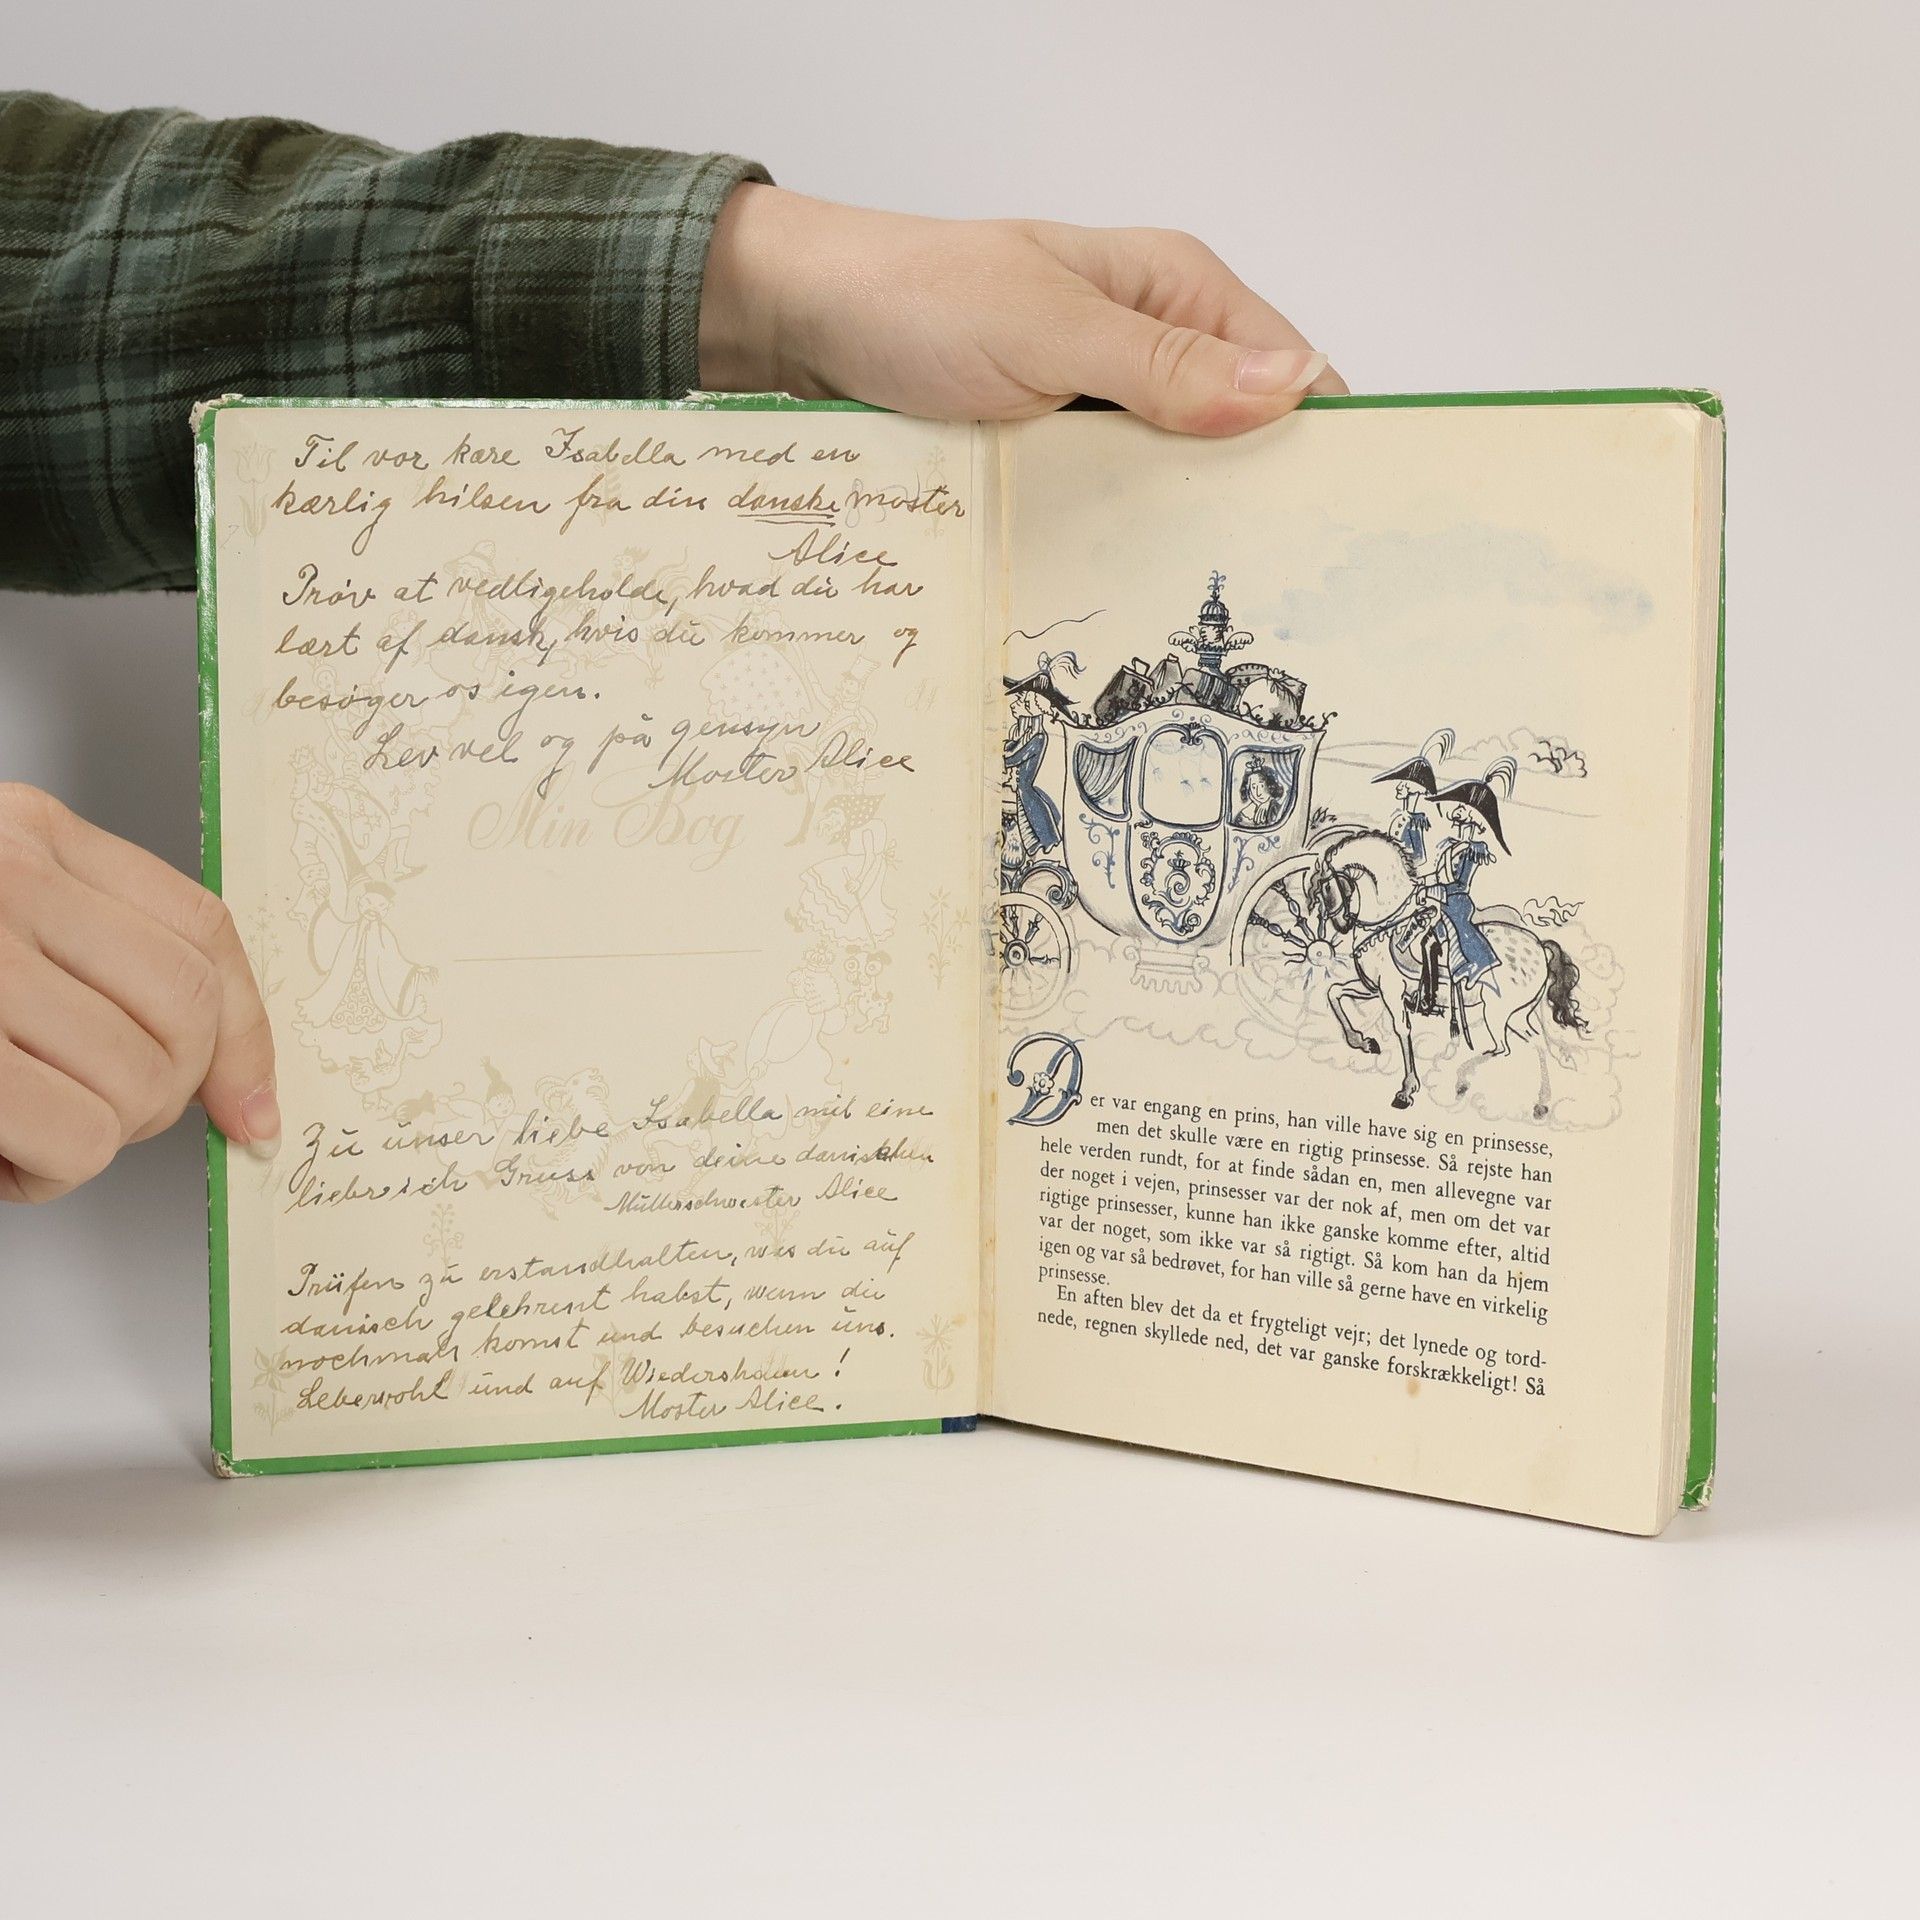 Til vor kære Isabella med en
kærlig hilsen fra din danske moster
Alice
Prøv at vedligeholde, hvad du har
lært af dansk, hvis du kommer og
besøger os igen.
Lev vel og på gensyn
Moster Alice
Min Bog
Zu unser liebe Isabella mit eine
Gruss von deine danischen
Mutterschwester Alice
Prüfen zu erstandhalten, was du auf
danisch gelehrent habst, wenn du
nochmals komst und besuchen uns.
Leberwohl und auf Wiedersheen!
Moster Alice.
Der var engang en prins, han ville have sig en prinsesse,
men det skulle være en rigtig prinsesse. Så rejste han
hele verden rundt, for at finde sådan en, men allevegne var
der noget i vejen, prinsesser var der nok af, men om det var
rigtige prinsesser, kunne han ikke ganske komme efter, altid
var der noget, som ikke var så rigtigt. Så kom han da hjem
igen og var så bedrøvet, for han ville så gerne have en virkelig
prinsesse.
En aften blev det da et frygteligt vejr; det lynede og tord-
nede, regnen skyllede ned, det var ganske forskrækkeligt! Så